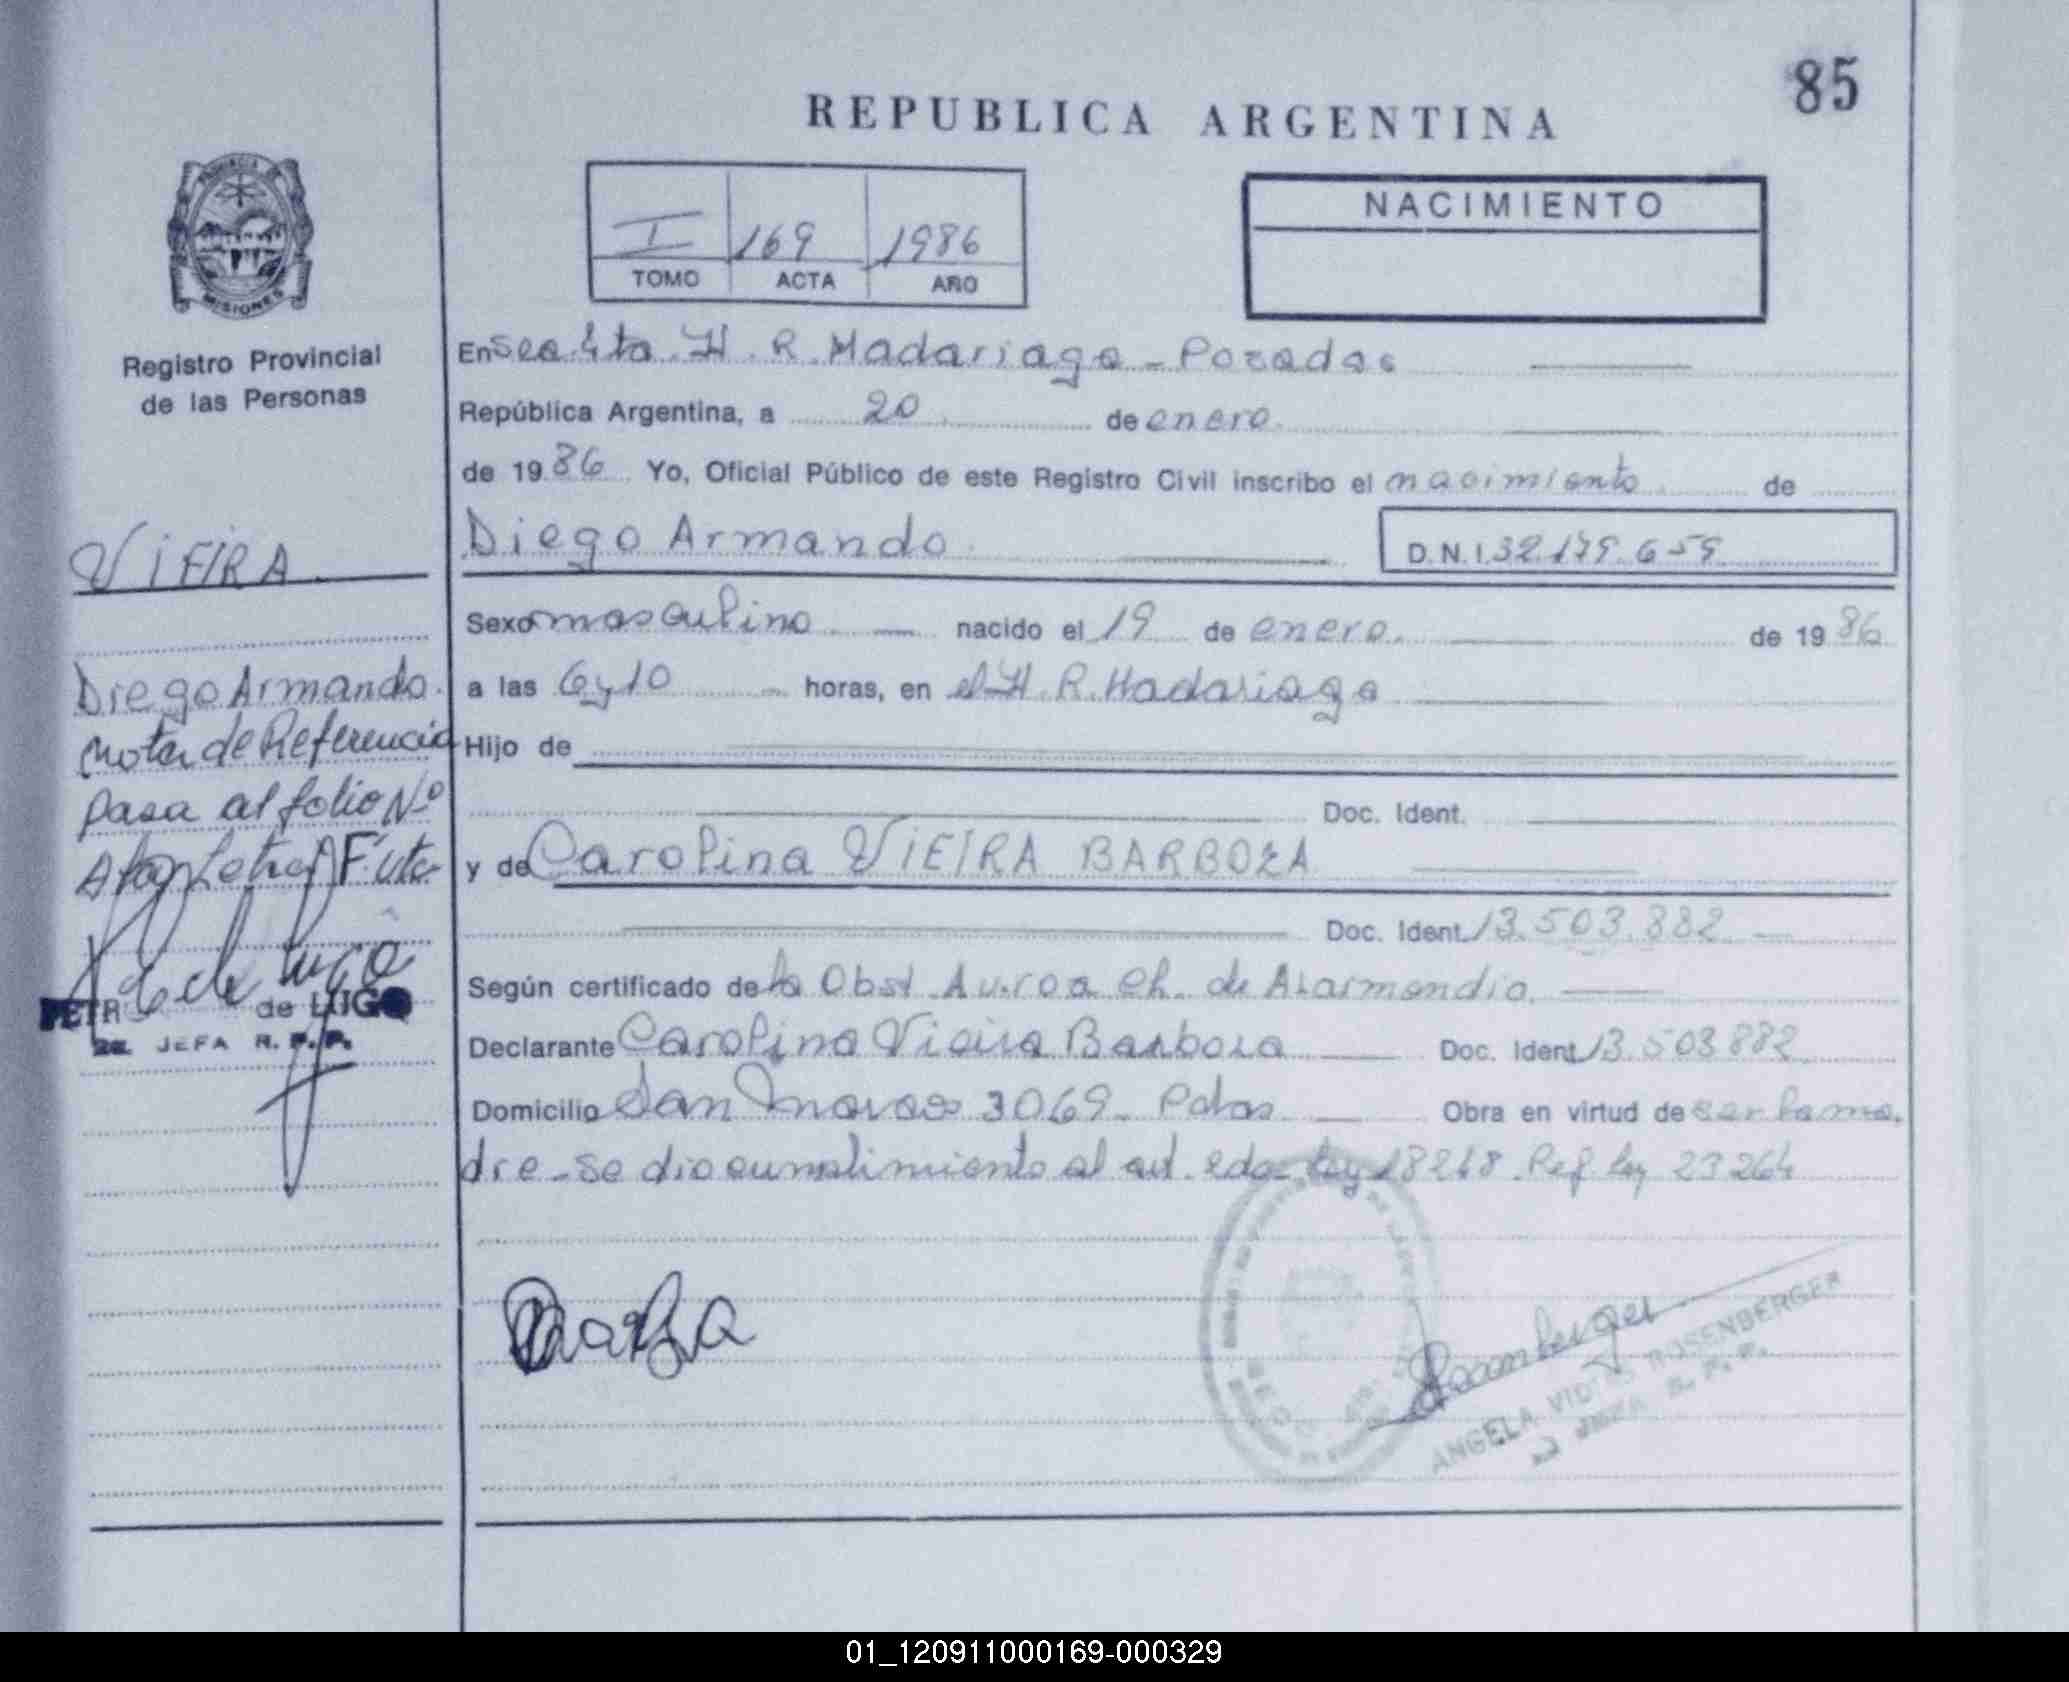 85
REPUBLICA ARGENTINA
I 169 1986
TOMO ACTA AÑO
NACIMIENTO
PROVINCIA DE
MISIONES
Registro Provincial
de las Personas
En Sec. 4ta. H. R. Madariaga - Posadas
República Argentina, a 20 de enero
de 1986 Yo, Oficial Público de este Registro Civil inscribo el nacimiento de
Diego Armando D.N.I. 32.179.659
Sexo masculino nacido el 19 de enero de 1986
a las 6 y 10 horas, en el H. R. Madariaga
Hijo de
Doc. Ident.
y de Carolina VIEIRA BARBOZA
Doc. Ident. 13.503.882
Según certificado de la Obst. Aurea Ch. de
Declarante Carolina Vieira Barboza Doc. Ident. 13.503.882
Domicilio San Marcos 3069 - Pdas Obra en virtud de ser la ma
dre - Se dio cumplimiento al art. 2do - Ley 18248 - Ref. ley 23264
VIEIRA
Diego Armando
Nota de Referencia
pasa al folio Nº
de LUGO
JEFA R. P. P.
Rosenberger
ANGELA ROSENBERGER
JEFA R. P. P.
01_120911000169-000329